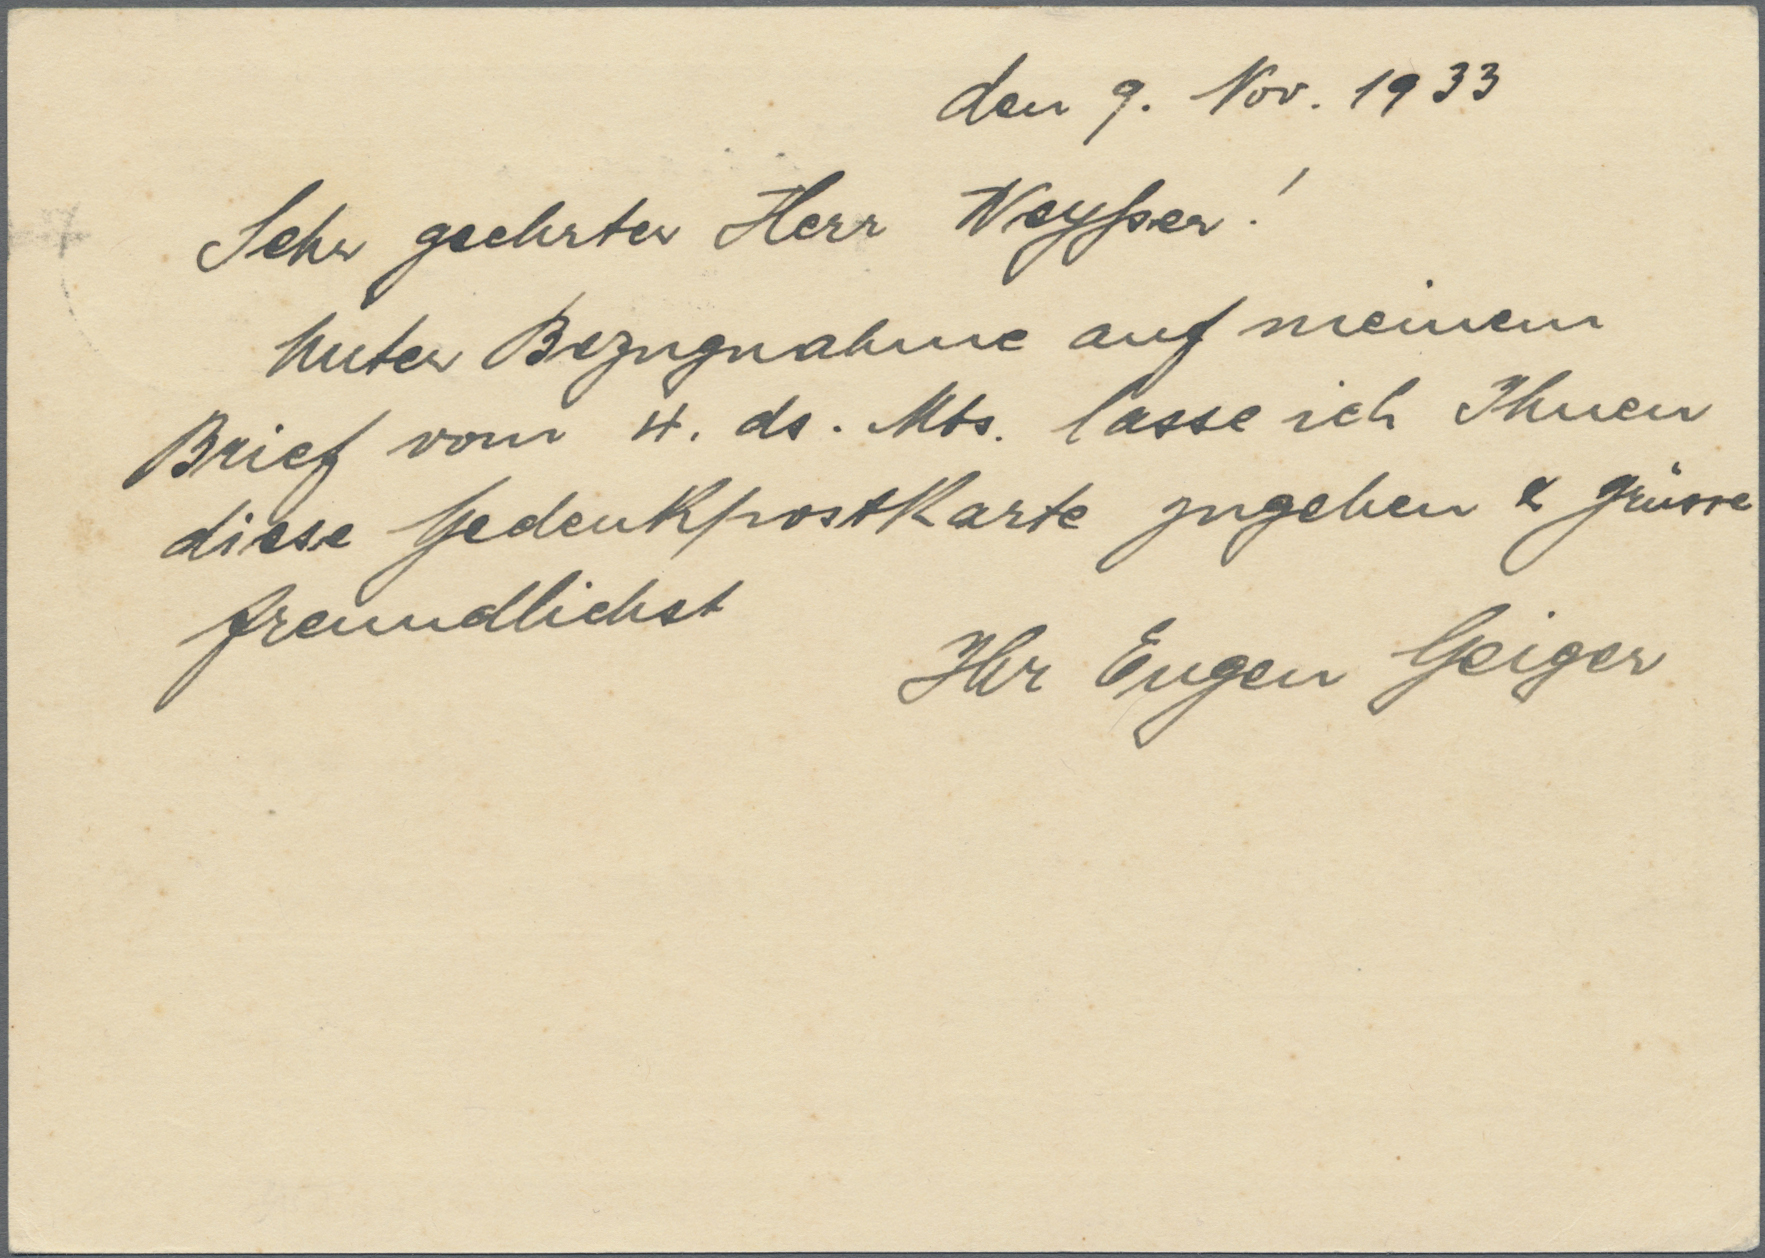 den 9. Nov. 1933
Sehr geehrter Herr Weysser!
Unter Bezugnahme auf meinem
Brief vom 4. ds. Mts. lasse ich Ihnen
diese Gedenkpostkarte zugehen & grüsse
freundlichst
Ihr Eugen Geiger